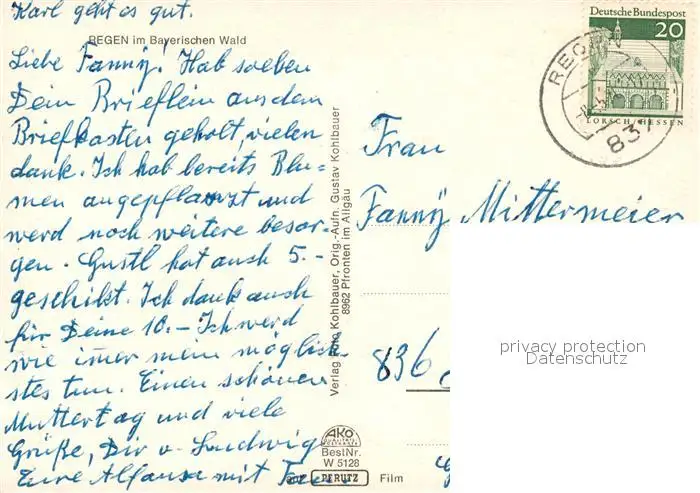 Karl geht es gut.
REGEN im Bayerischen Wald
Liebe Fannÿ! Hab soeben
Dein Brieflein aus dem
Briefkasten geholt, vielen
dank. Ich hab bereits Blu-
men angepflanzt und
werd noch weitere besor-
gen. Gustl hat auch 5.-
geschikt. Ich dank auch
für Deine 10.- Ich werd
wie imer mein möglich-
stes tun. Einen schönen
Muttertag und viele
Grüße, Dir u. Ludwig
Eure Alfausa mit
Verlag Kohlbauer, Orig.-Aufn. Gustav Kohlbauer
8962 Pfronten im Allgäu
AKO
BestNr.
W 5128
auf PERUTZ Film
Deutsche Bundespost
20
LORSCH/HESSEN
REGEN
837
Frau
Fannÿ Mittermeier
836
privacy protection
Datenschutz